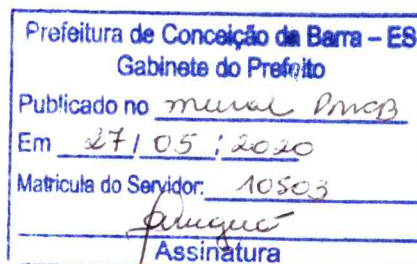 Prefeitura de Conceição da Barra – ES
Gabinete do Prefeito
Publicado no mural PMCB
Em 27 / 05 / 2020
Matricula do Servidor: 10503
Assinatura